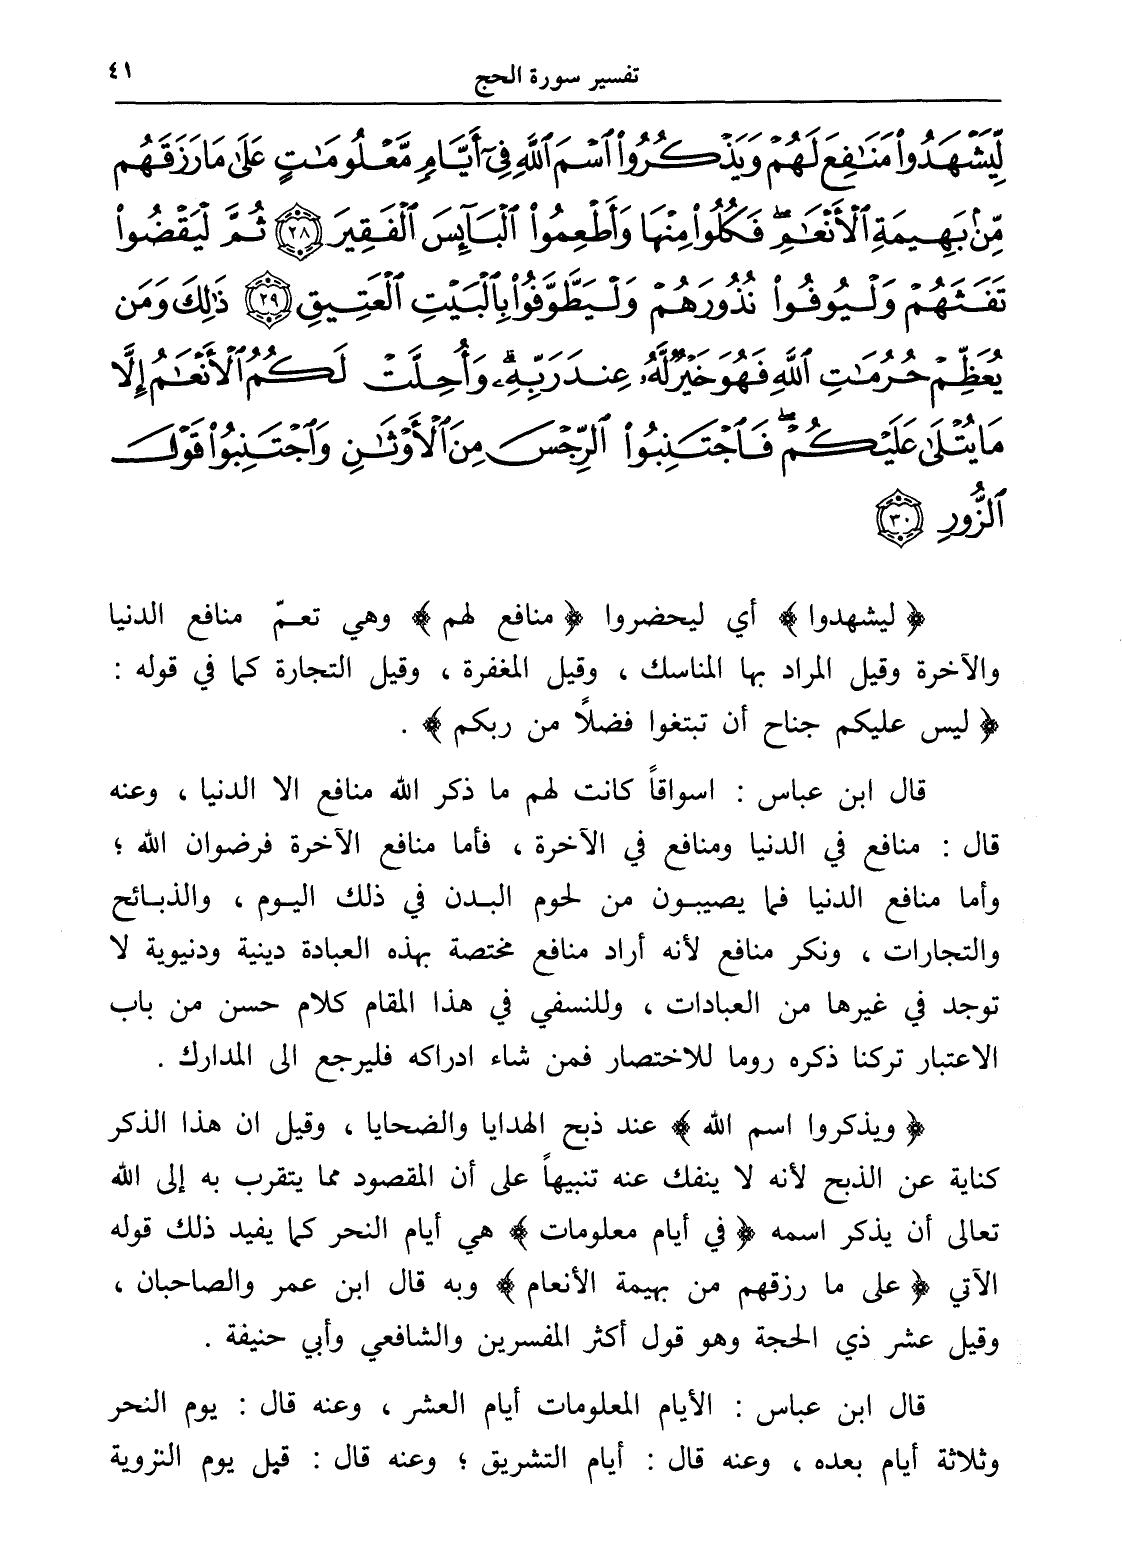 تفسير سورة الحج ٤١
لِّيَشْهَدُوا۟ مَنَٰفِعَ لَهُمْ وَيَذْكُرُوا۟ ٱسْمَ ٱللَّهِ فِىٓ أَيَّامٍ مَّعْلُومَٰتٍ عَلَىٰ مَا رَزَقَهُم
مِّنۢ بَهِيمَةِ ٱلْأَنْعَٰمِ ۖ فَكُلُوا۟ مِنْهَا وَأَطْعِمُوا۟ ٱلْبَآئِسَ ٱلْفَقِيرَ ٢٨ ثُمَّ لْيَقْضُوا۟
تَفَثَهُمْ وَلْيُوفُوا۟ نُذُورَهُمْ وَلْيَطَّوَّفُوا۟ بِٱلْبَيْتِ ٱلْعَتِيقِ ٢٩ ذَٰلِكَ وَمَن
يُعَظِّمْ حُرُمَٰتِ ٱللَّهِ فَهُوَ خَيْرٌ لَّهُۥ عِندَ رَبِّهِۦ ۗ وَأُحِلَّتْ لَكُمُ ٱلْأَنْعَٰمُ إِلَّا
مَا يُتْلَىٰ عَلَيْكُمْ ۖ فَٱجْتَنِبُوا۟ ٱلرِّجْسَ مِنَ ٱلْأَوْثَٰنِ وَٱجْتَنِبُوا۟ قَوْلَ
ٱلزُّورِ ٣٠
﴿ ليشهدوا ﴾ أي ليحضروا ﴿ منافع لهم ﴾ وهي تعمّ منافع الدنيا
والآخرة وقيل المراد بها المناسك ، وقيل المغفرة ، وقيل التجارة كما في قوله :
﴿ ليس عليكم جناح أن تبتغوا فضلاً من ربكم ﴾ .
قال ابن عباس : اسواقاً كانت لهم ما ذكر الله منافع الا الدنيا ، وعنه
قال : منافع في الدنيا ومنافع في الآخرة ، فأما منافع الآخرة فرضوان الله ؛
وأما منافع الدنيا فما يصيبون من لحوم البدن في ذلك اليوم ، والذبائح
والتجارات ، ونكر منافع لأنه أراد منافع مختصة بهذه العبادة دينية ودنيوية لا
توجد في غيرها من العبادات ، وللنسفي في هذا المقام كلام حسن من باب
الاعتبار تركنا ذكره روما للاختصار فمن شاء ادراكه فليرجع الى المدارك .
﴿ ويذكروا اسم الله ﴾ عند ذبح الهدايا والضحايا ، وقيل ان هذا الذكر
كناية عن الذبح لأنه لا ينفك عنه تنبيهاً على أن المقصود مما يتقرب به إلى الله
تعالى أن يذكر اسمه ﴿ في أيام معلومات ﴾ هي أيام النحر كما يفيد ذلك قوله
الآتي ﴿ على ما رزقهم من بهيمة الأنعام ﴾ وبه قال ابن عمر والصاحبان ،
وقيل عشر ذي الحجة وهو قول أكثر المفسرين والشافعي وأبي حنيفة .
قال ابن عباس : الأيام المعلومات أيام العشر ، وعنه قال : يوم النحر
وثلاثة أيام بعده ، وعنه قال : أيام التشريق ؛ وعنه قال : قبل يوم التروية